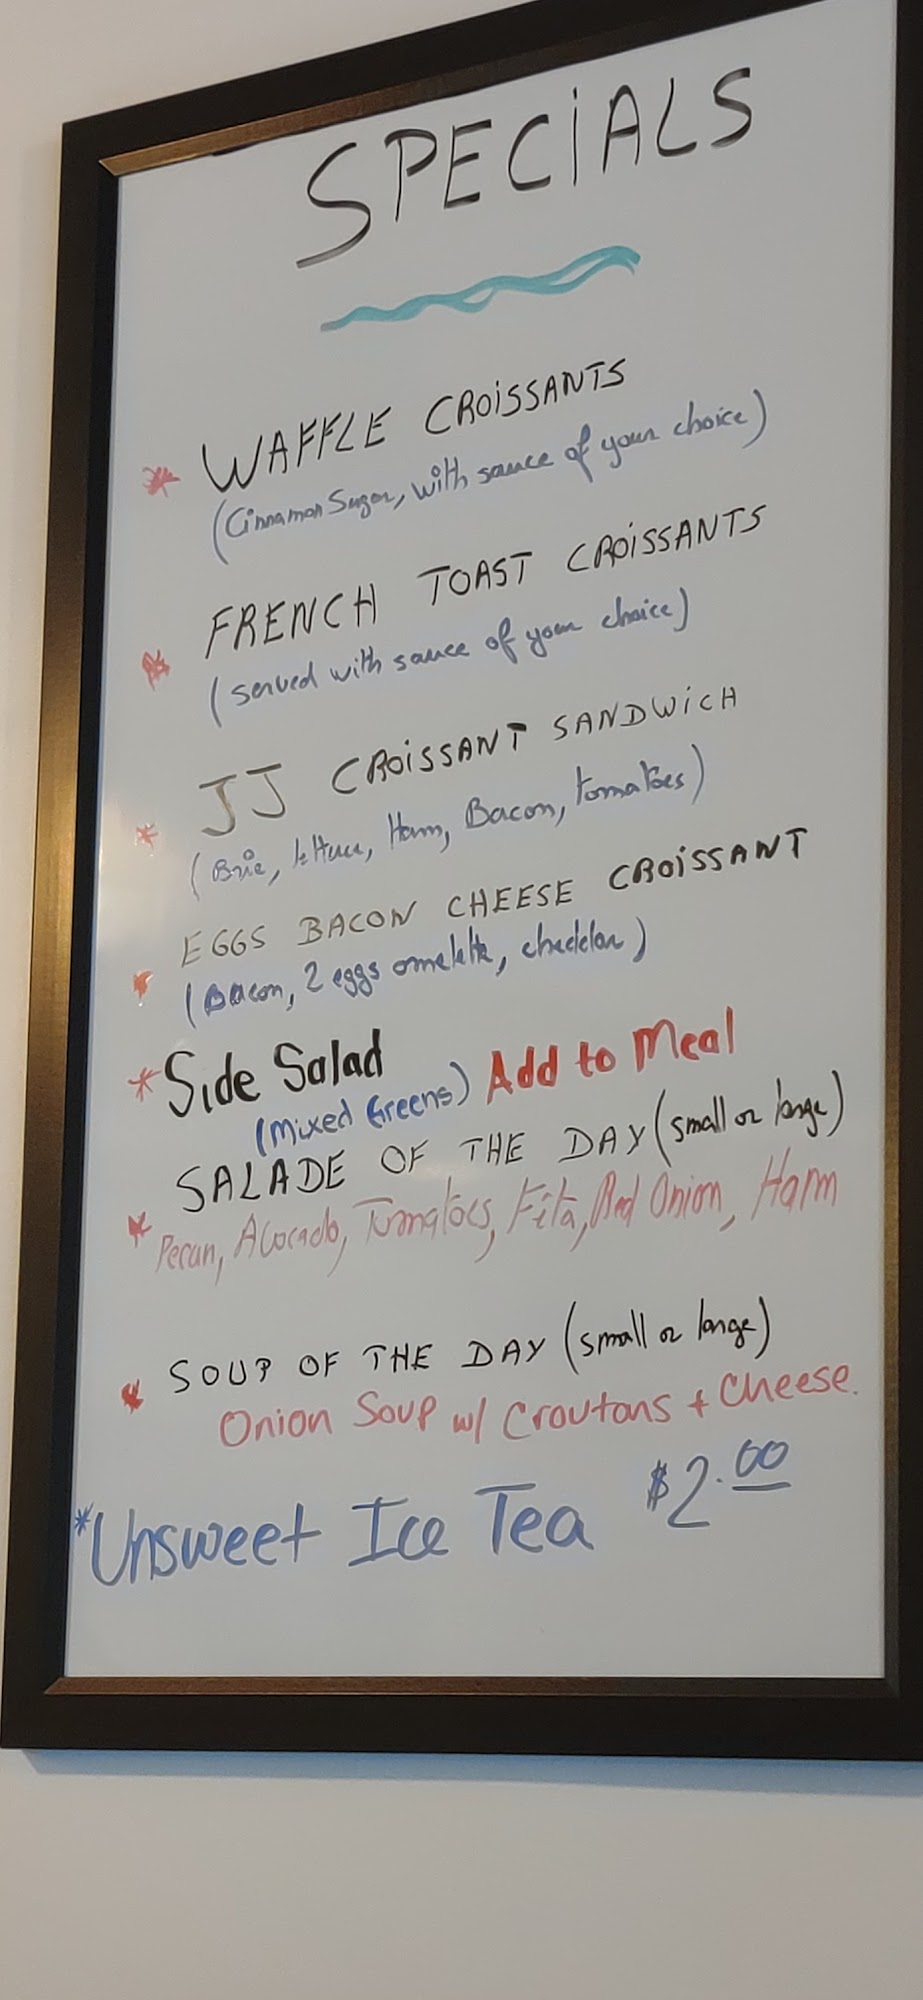 SPECIALS
* WAFFLE CROISSANTS
(Cinnamon Sugar, with sauce of your choice)
* FRENCH TOAST CROISSANTS
(served with sauce of your choice)
* JJ CROISSANT SANDWICH
(Brie, lettuce, Ham, Bacon, tomatoes)
* EGGS BACON CHEESE CROISSANT
(Bacon, 2 eggs omelette, cheddar)
* Side Salad
(Mixed Greens) Add to Meal
* SALADE OF THE DAY (small or large)
Pecan, Avocado, Tomatoes, Feta, Red Onion, Ham
* SOUP OF THE DAY (small or large)
Onion Soup w/ Croutons + Cheese.
*Unsweet Ice Tea $2.00